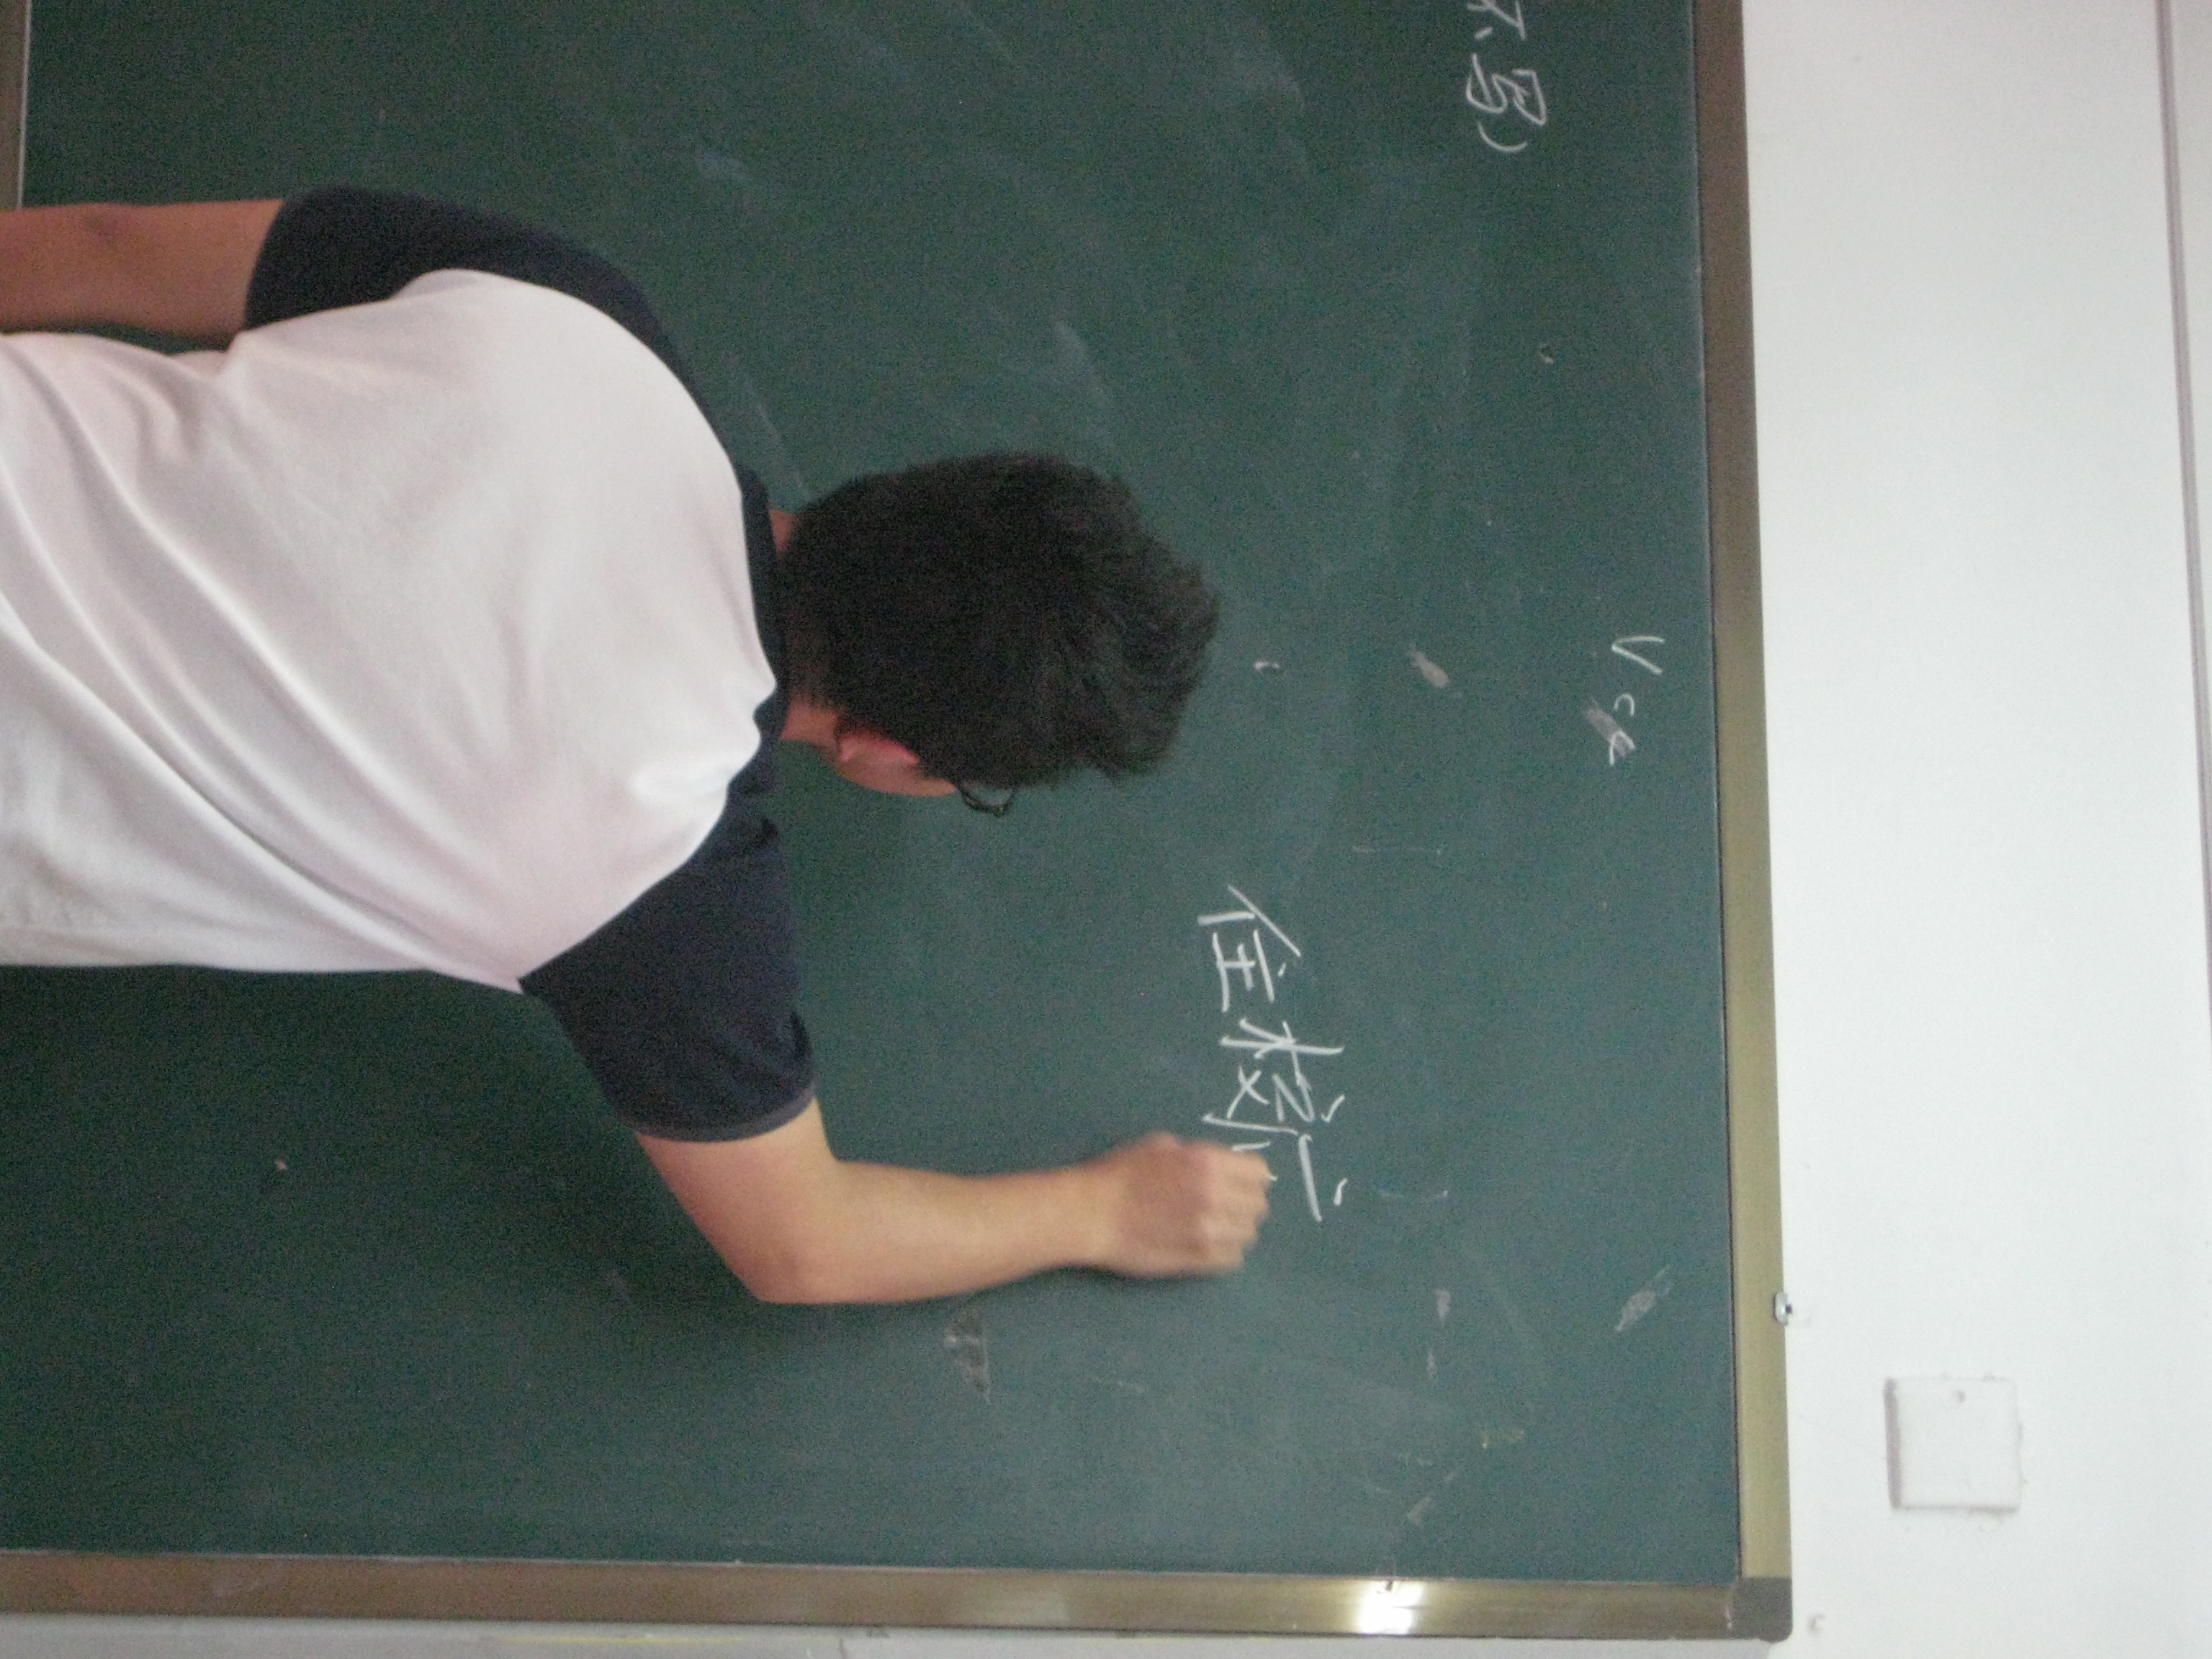 Vcc
不写)
住校